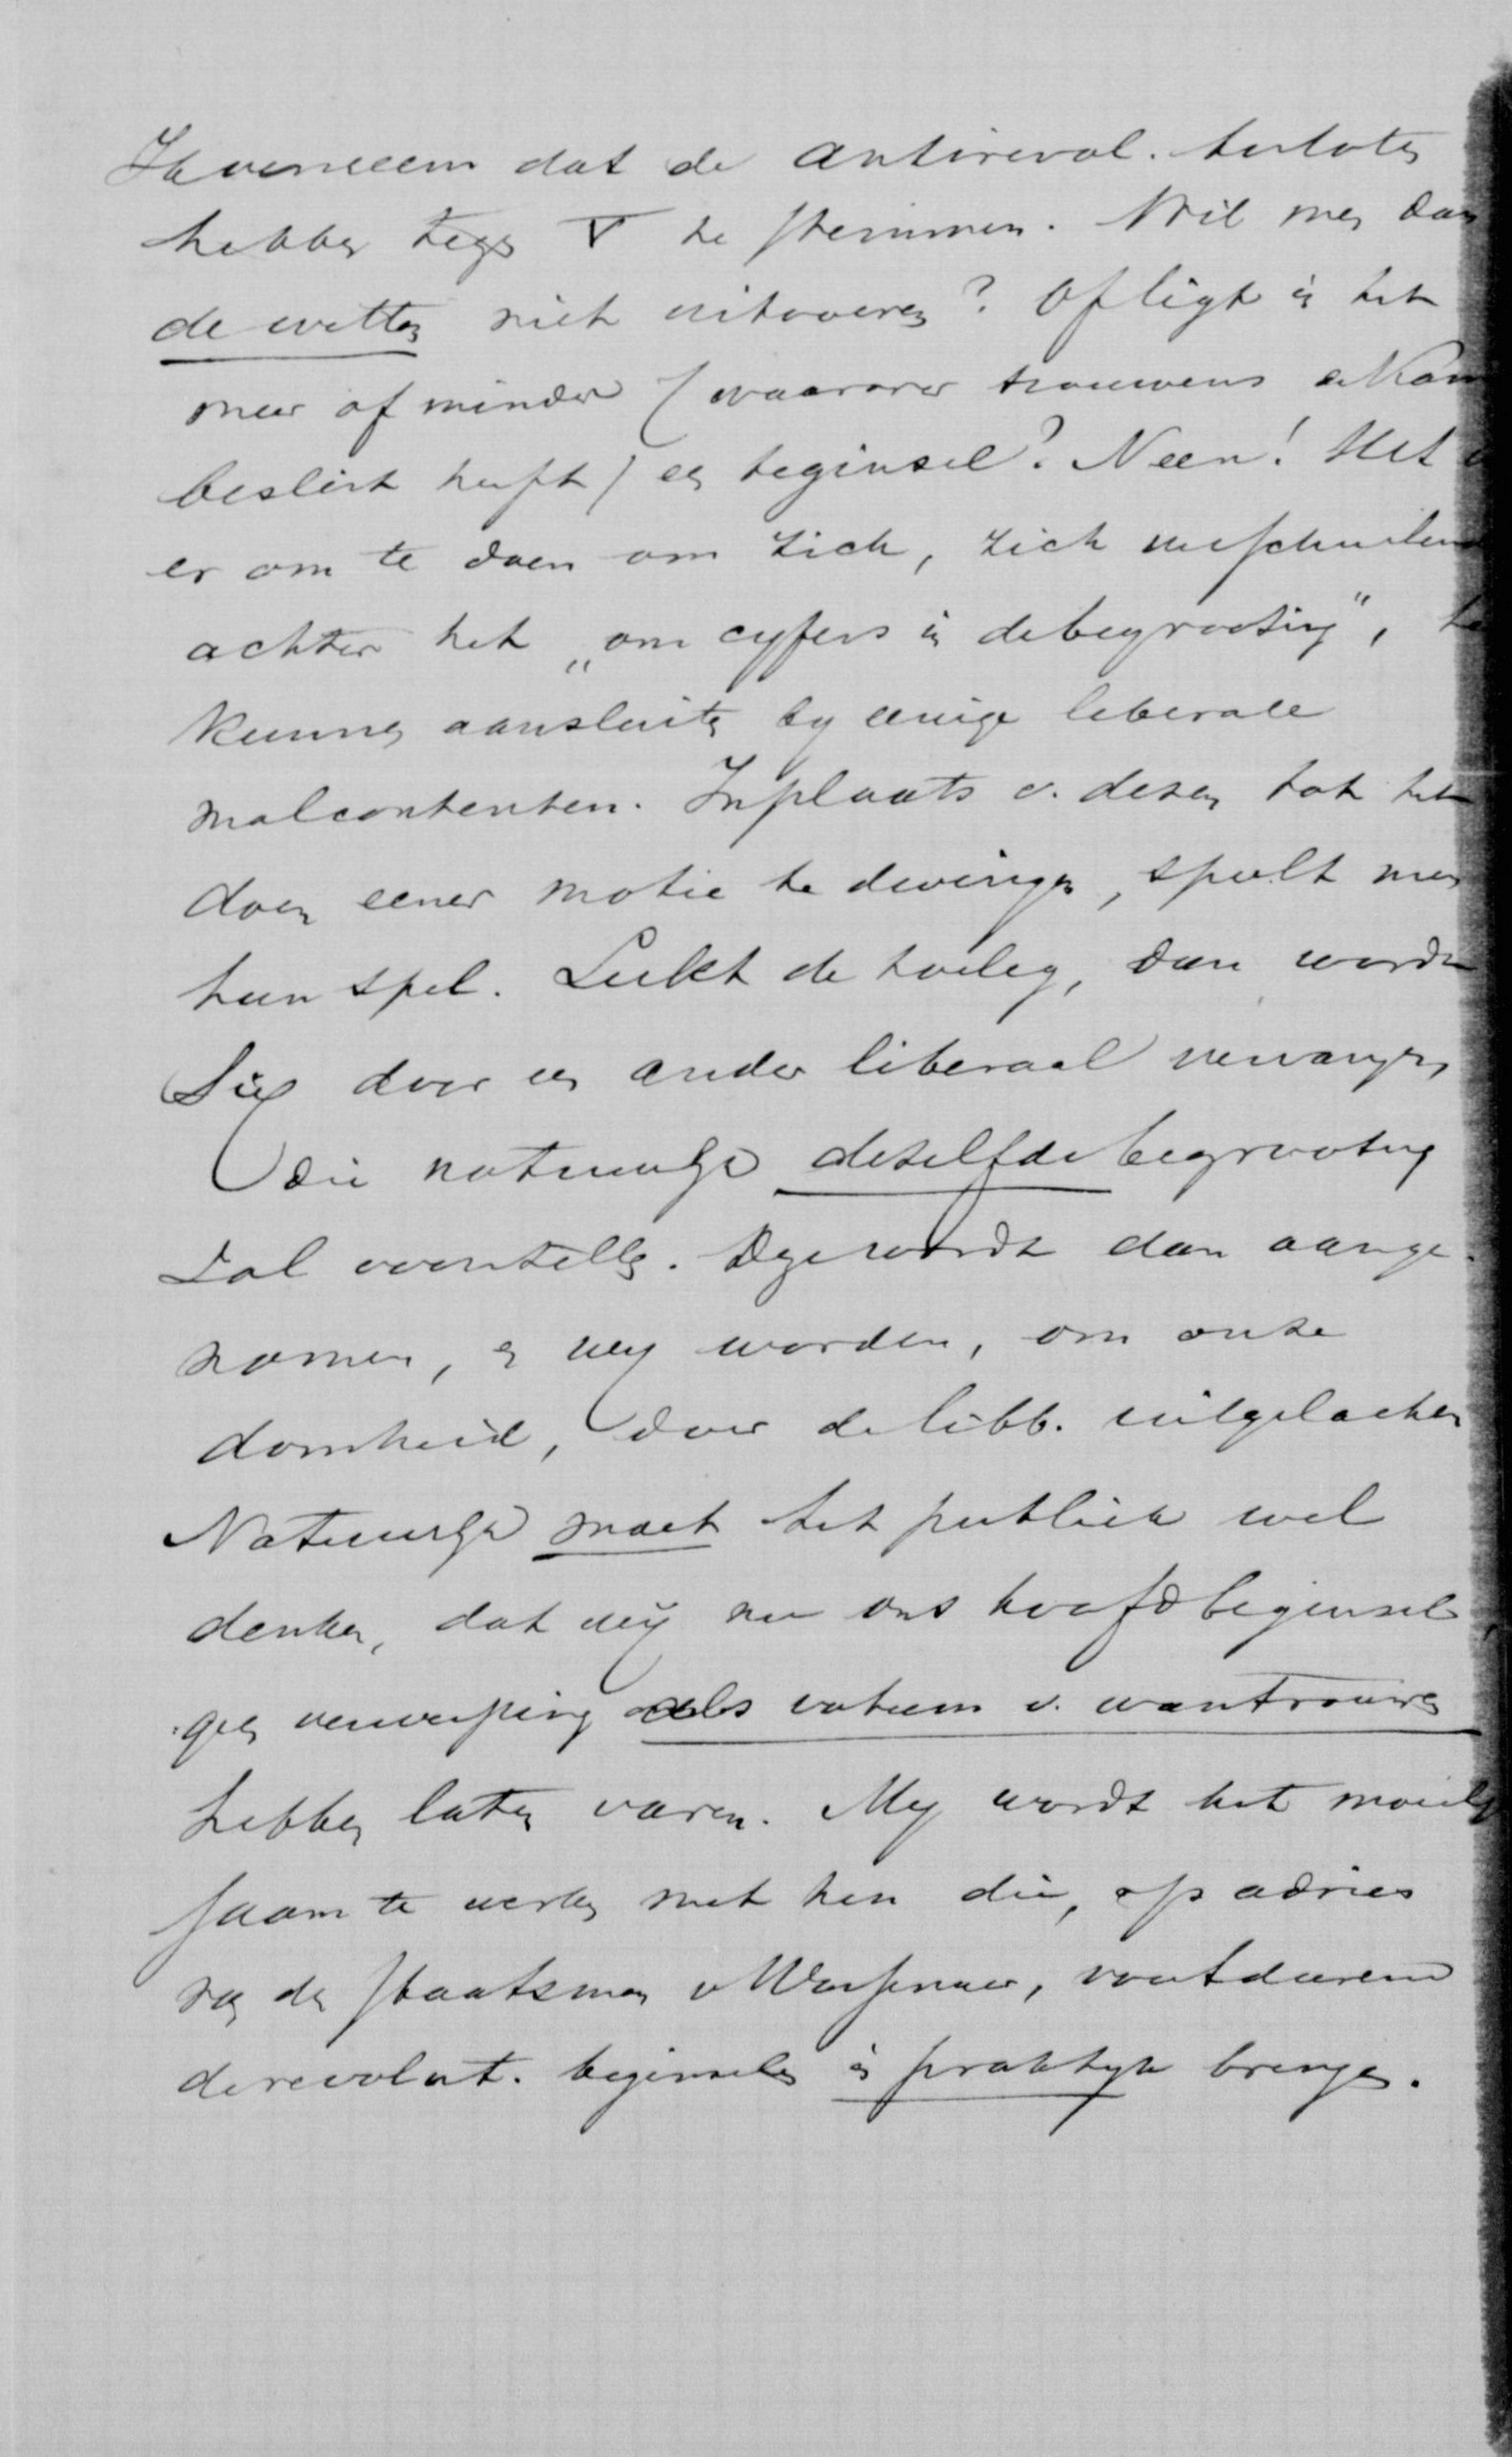 Ik verneem dat de antirevol. besloten
hebben tegen V te stemmen. Wil men dan
de wetten niet uitvoeren? Of ligt in het
meer of minder (waarover trouwens de Kam
beslist heeft) een beginsel? Neen! Het
er om te doen om zich, zich verschuilend
achter het „om cyfers in de begrooting", te
kunnen aansluiten by eenige liberale
malcontenten. Inplaats v. dezen tot het
doen eener motie te dwingen, speelt men
hun spel. Lukt de toeleg, dan wordt
Six door een ander liberaal vervangen,
die natuurlyk dezelfde begrooting
zal voorstellen. Deze wordt dan aange-
nomen, en wy worden, om onze
domheid, door de libb. uitgelachen
Natuurlyk moet het publiek wel
denken, dat wy nu ons hoofdbeginsel,
geen verwerping als votum v. wantrouwen
hebben laten varen. My wordt het moeilyk
saam te werken met hen die, op advies
van den staatsman v Wassenaer, voortdurend
de revolut. beginselen in praktyk brengen.